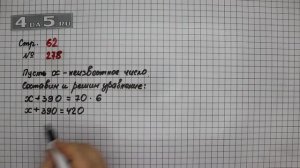 4DA5.RU
Стр. 62
№ 278
Пусть x - неизвестное число
Составим и решим уравнение:
x + 390 = 70 · 6
x + 390 = 420